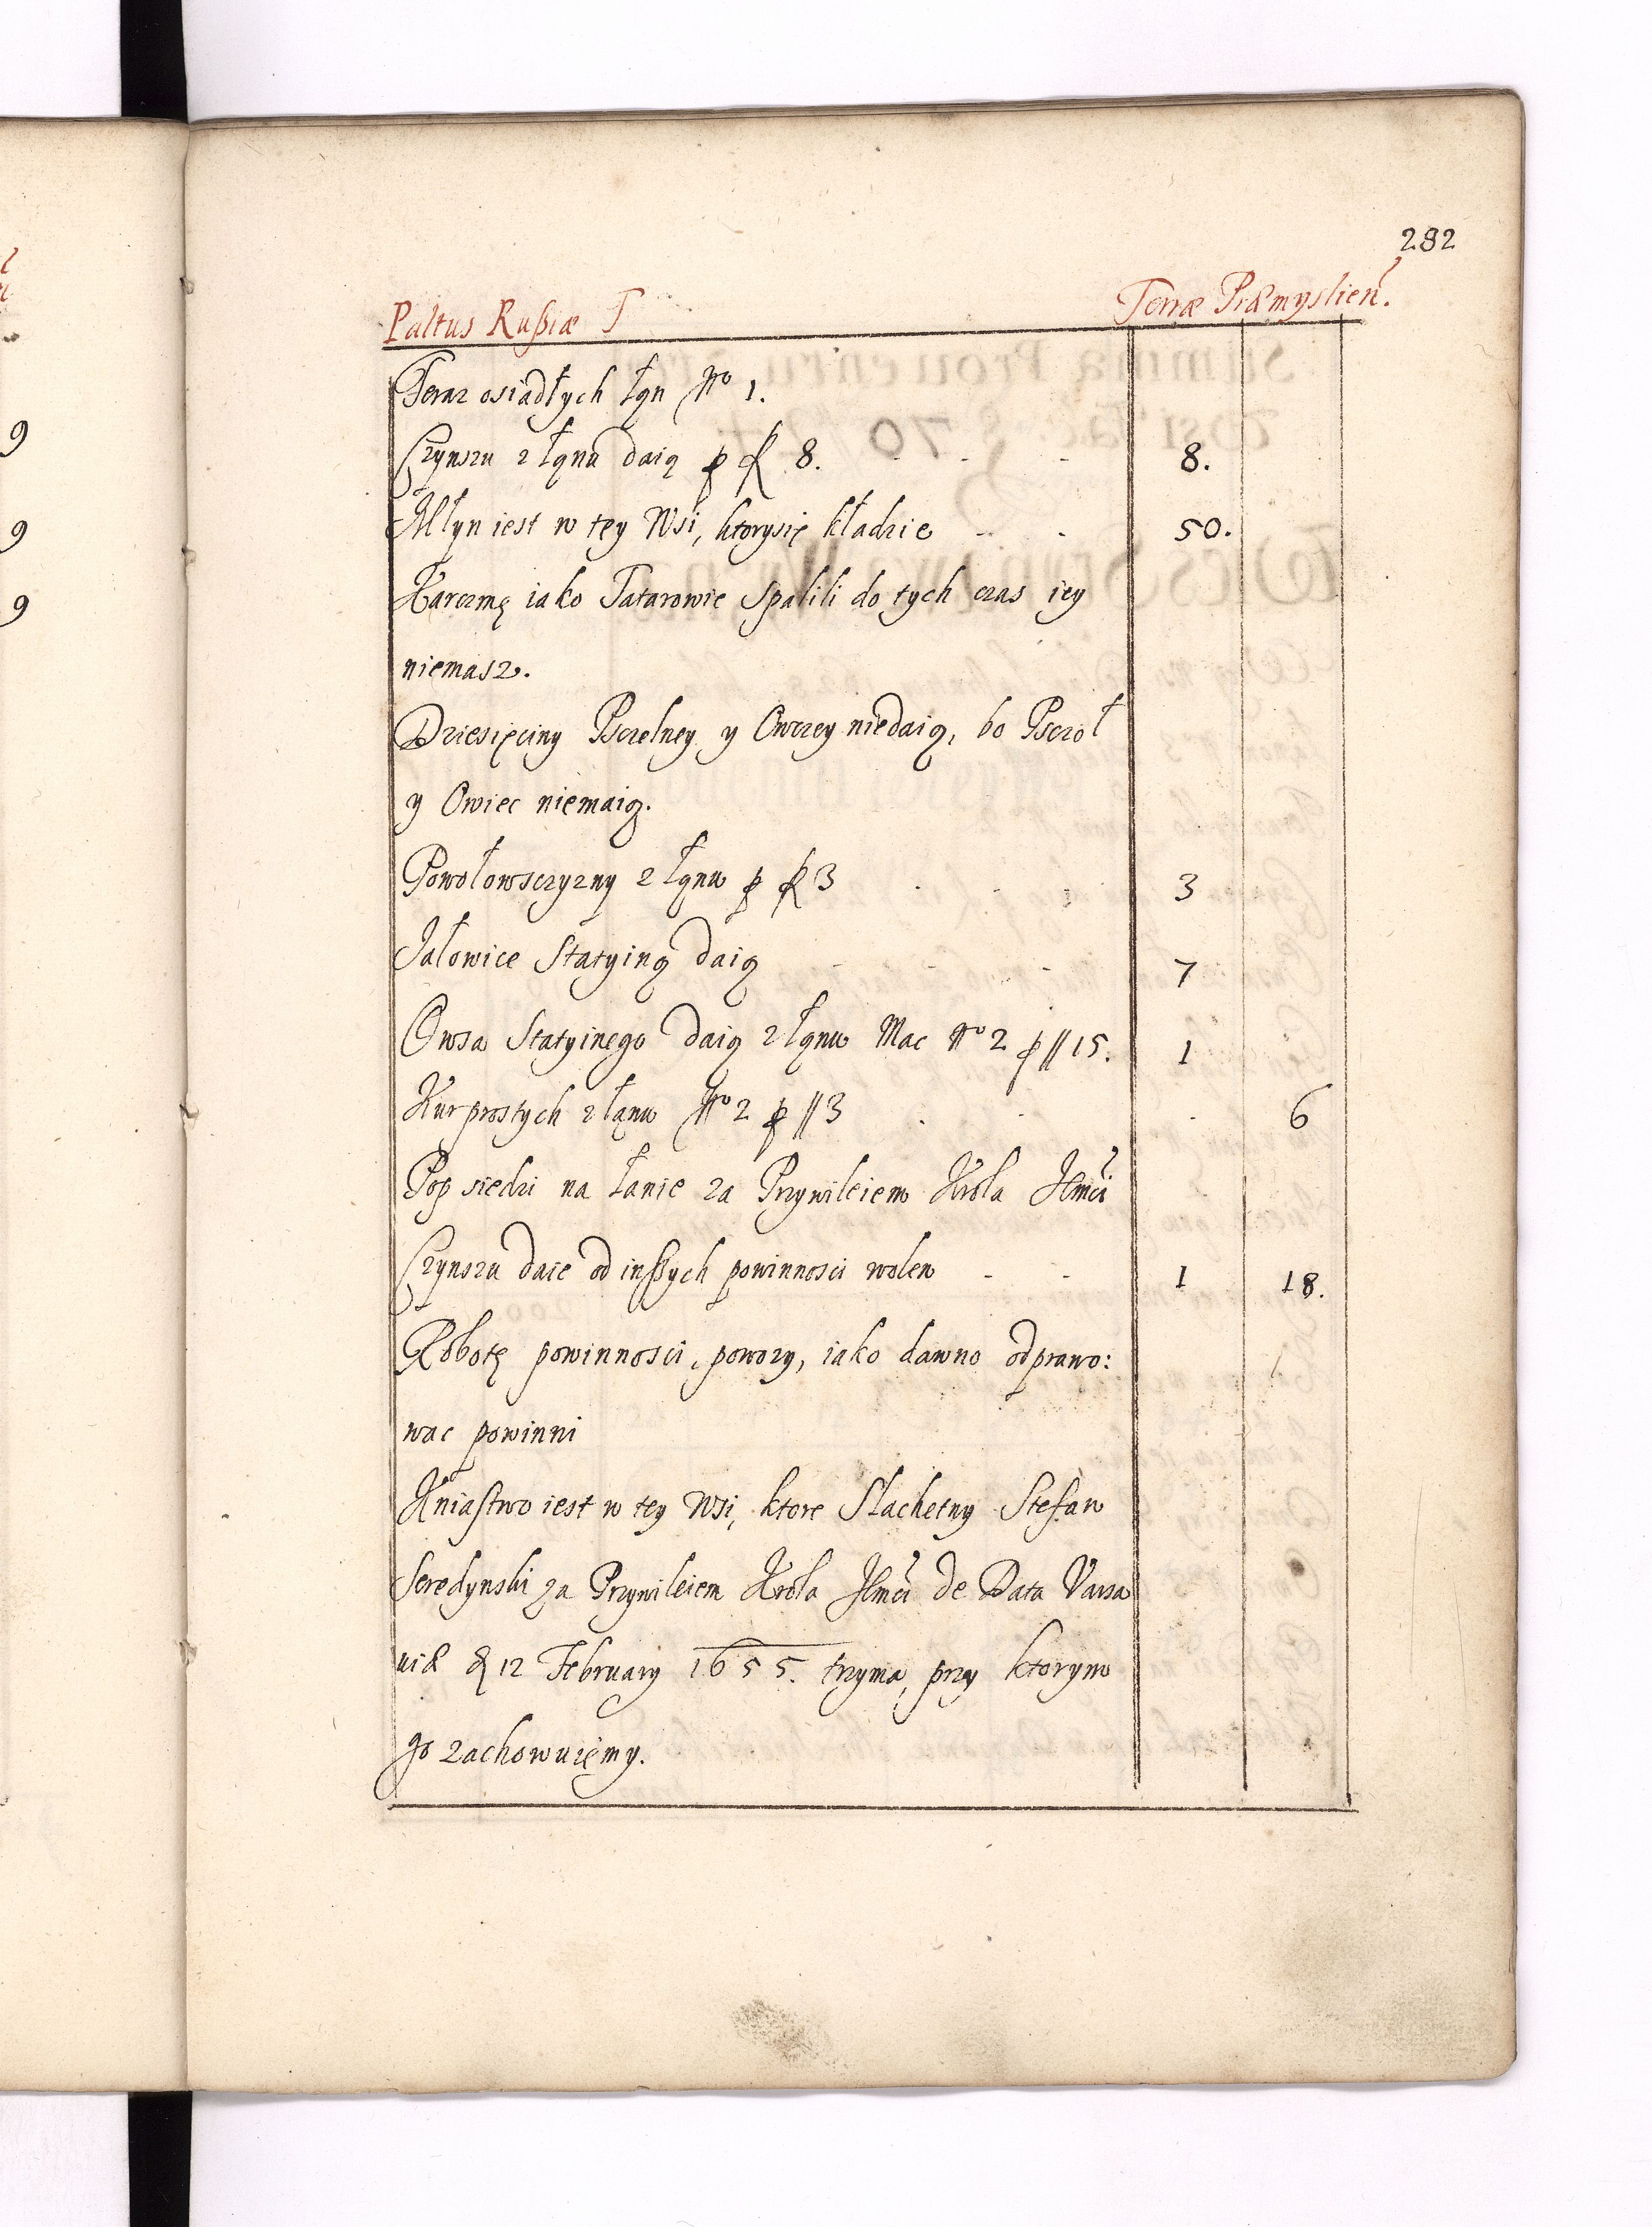 282
Paltus Rußiæ T Terræ Præmyslien.
Teraz osiadłych łęn Nro 1.
Czynszu z łęnu daią p f 8. 8.
Młyn iest w tey Wsi, ktorysię kładzie 50.
Karczmę iako Tatarowie spalili do tych czas iey
niemasz.
Dziesięciny Pszelney y Owczey niedaią, bo Pszoł
y Owiec niemaią.
Powołowszczyzny z łęnu p f 3 3
Jałowice Statyiną daią 7
Owsa Statyinego daią z łęnu Mac Nro 2 p ʃʃ 15. 1
Kur prostych z łanu Nro 2 p ʃʃ 3 6
Pop siedzi na łanie za Przywileiem Krola Jłmci
Czynszu daie od inszych powinnosci wolen 1 18.
Robotę powinnosci, powozy, iako dawno odprawo:
wac powinni
Kniastwo iest w tey Wsi, ktore Slachetny Stefan
Seredynski za Przywileiem Krola Jłmci de Data Varsa
uiæ 12 February 1655. trzyma, przy ktorym
go zachowuięmy.
9
9
9